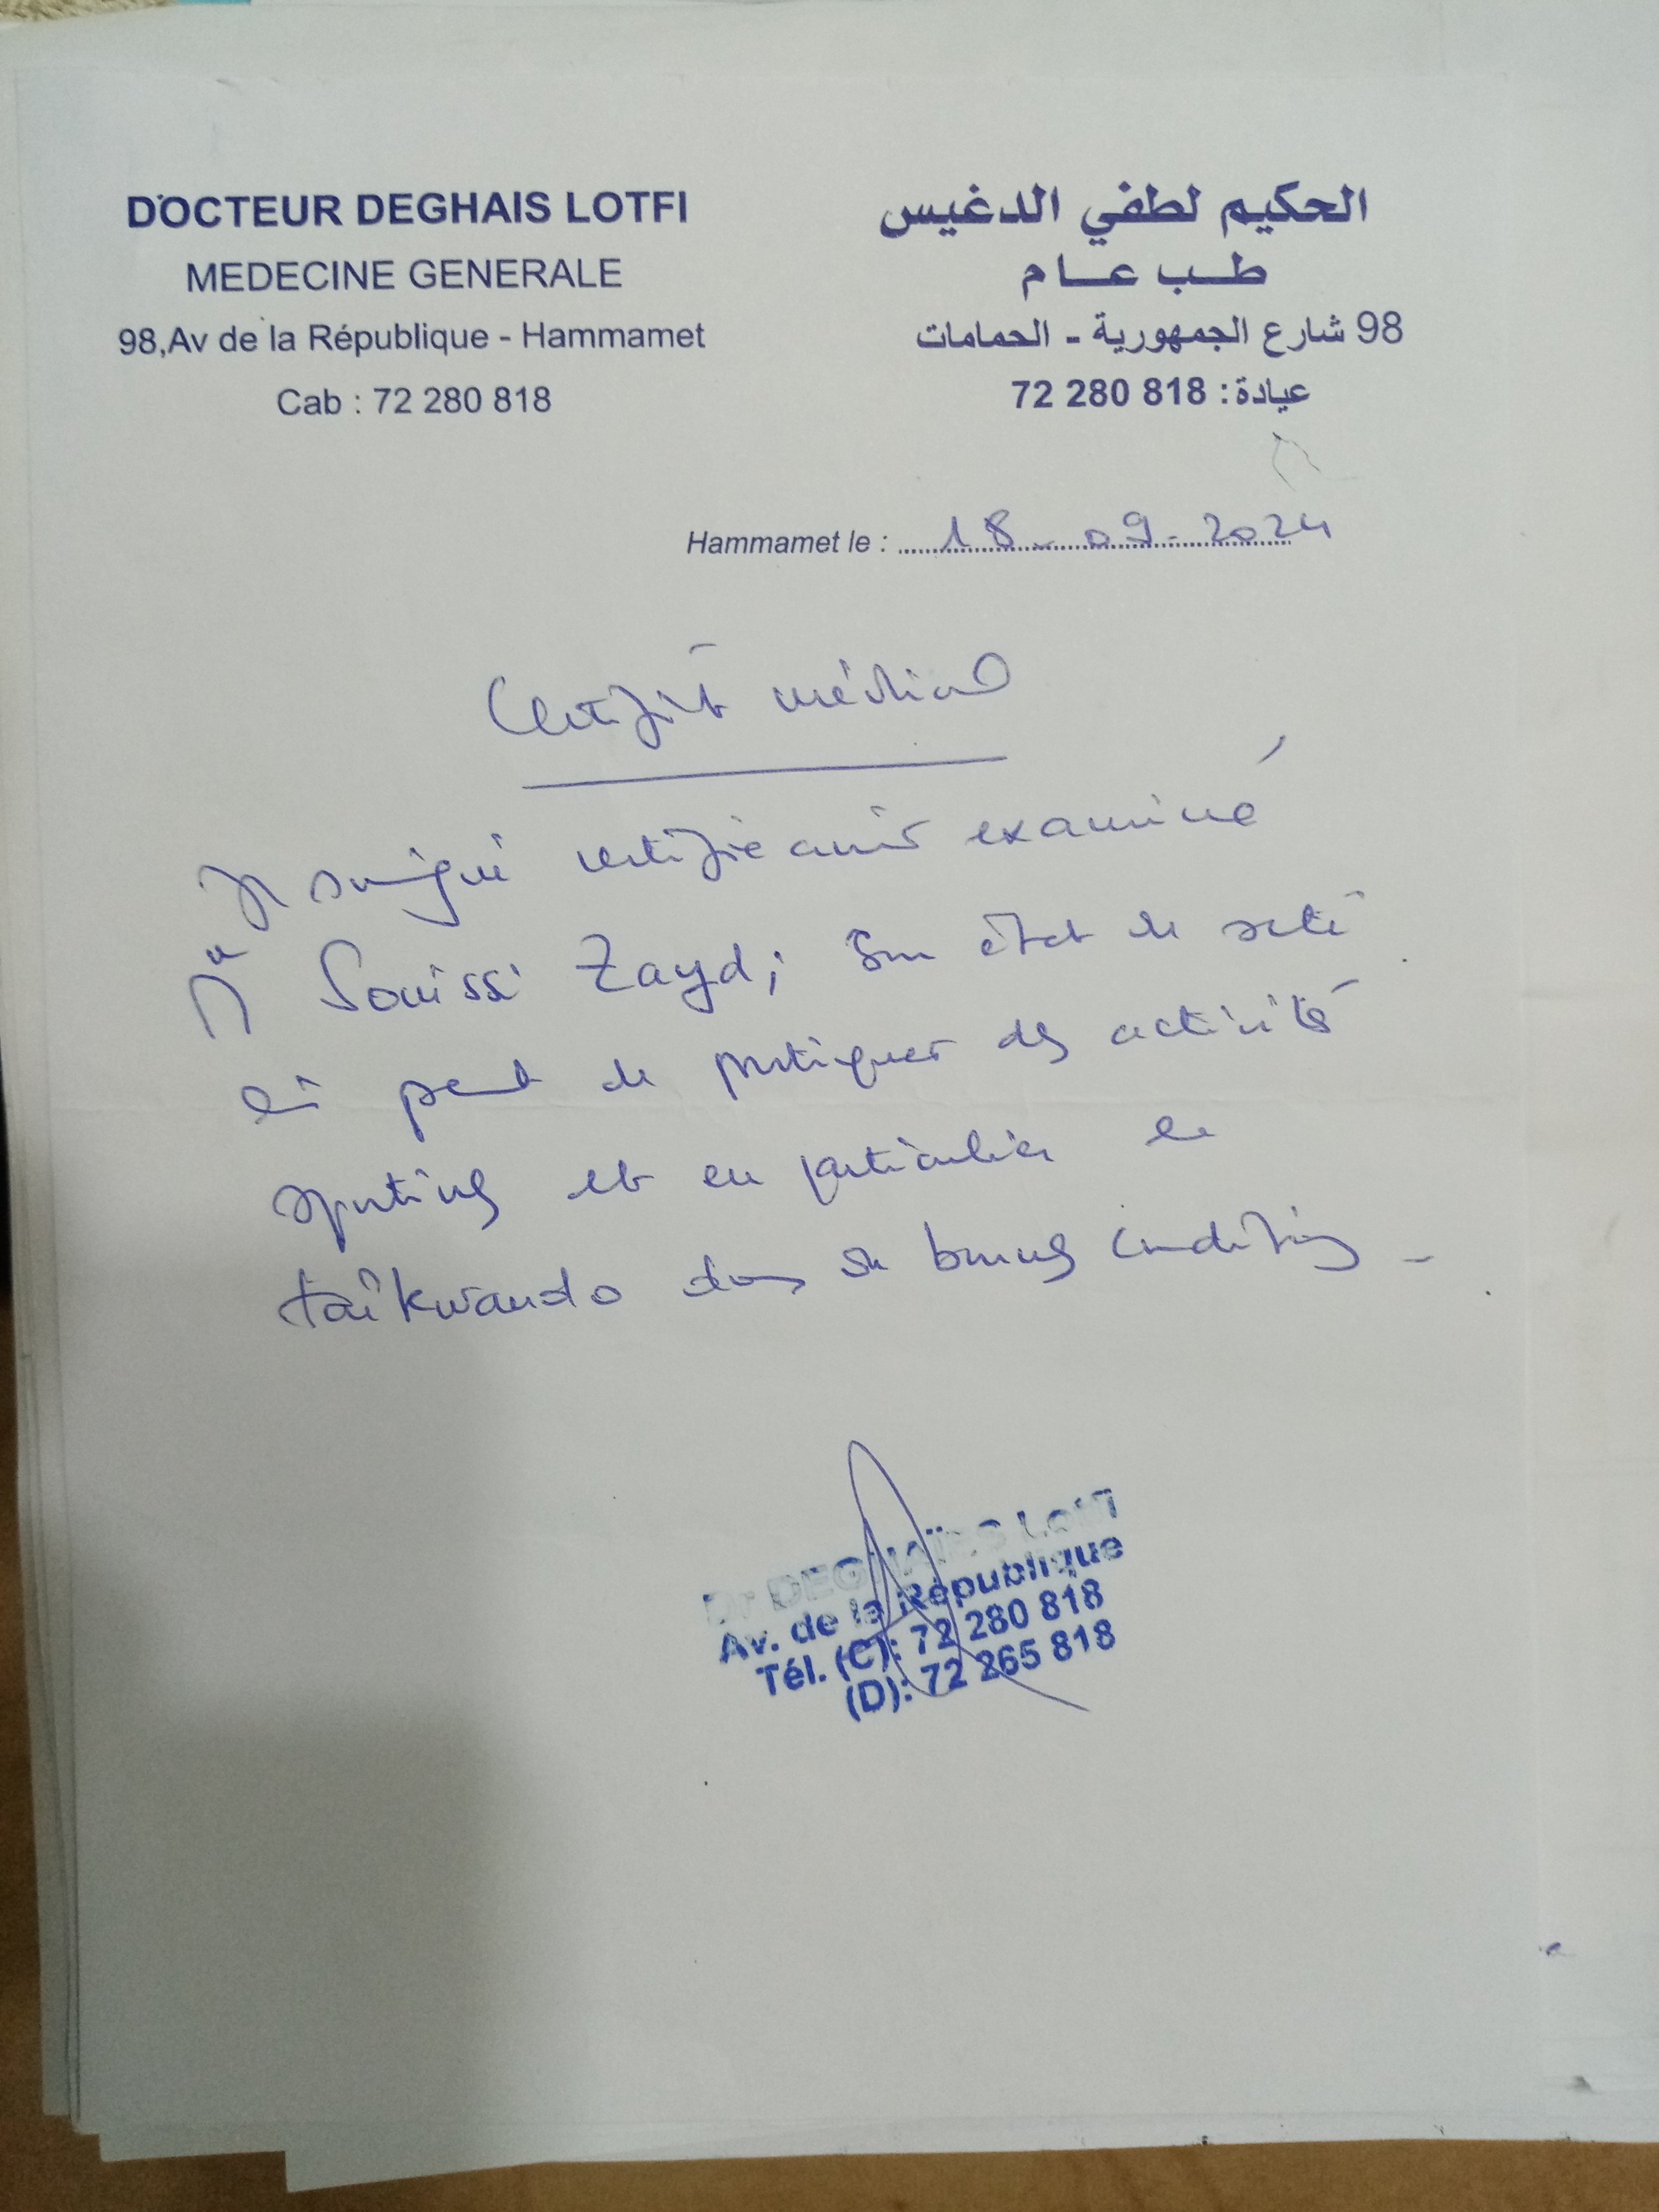 DOCTEUR DEGHAIS LOTFI
MEDECINE GENERALE
98,Av de la République - Hammamet
Cab : 72 280 818
الحكيم لطفي الدغيس
طب عام
98 شارع الجمهورية - الحمامات
عيادة : 72 280 818
Hammamet le : 18-09-2024
Certificat médical
Je soussigné certifie avoir examiné
Souissi Zayd; Son état de santé
lui permet de pratiquer des activités
sportives et en particulier le
taîkwando dans de bonnes conditions -
Dr DEGHAÏES LOTFI
Av. de la République
Tél. (C): 72 280 818
(D): 72 265 818